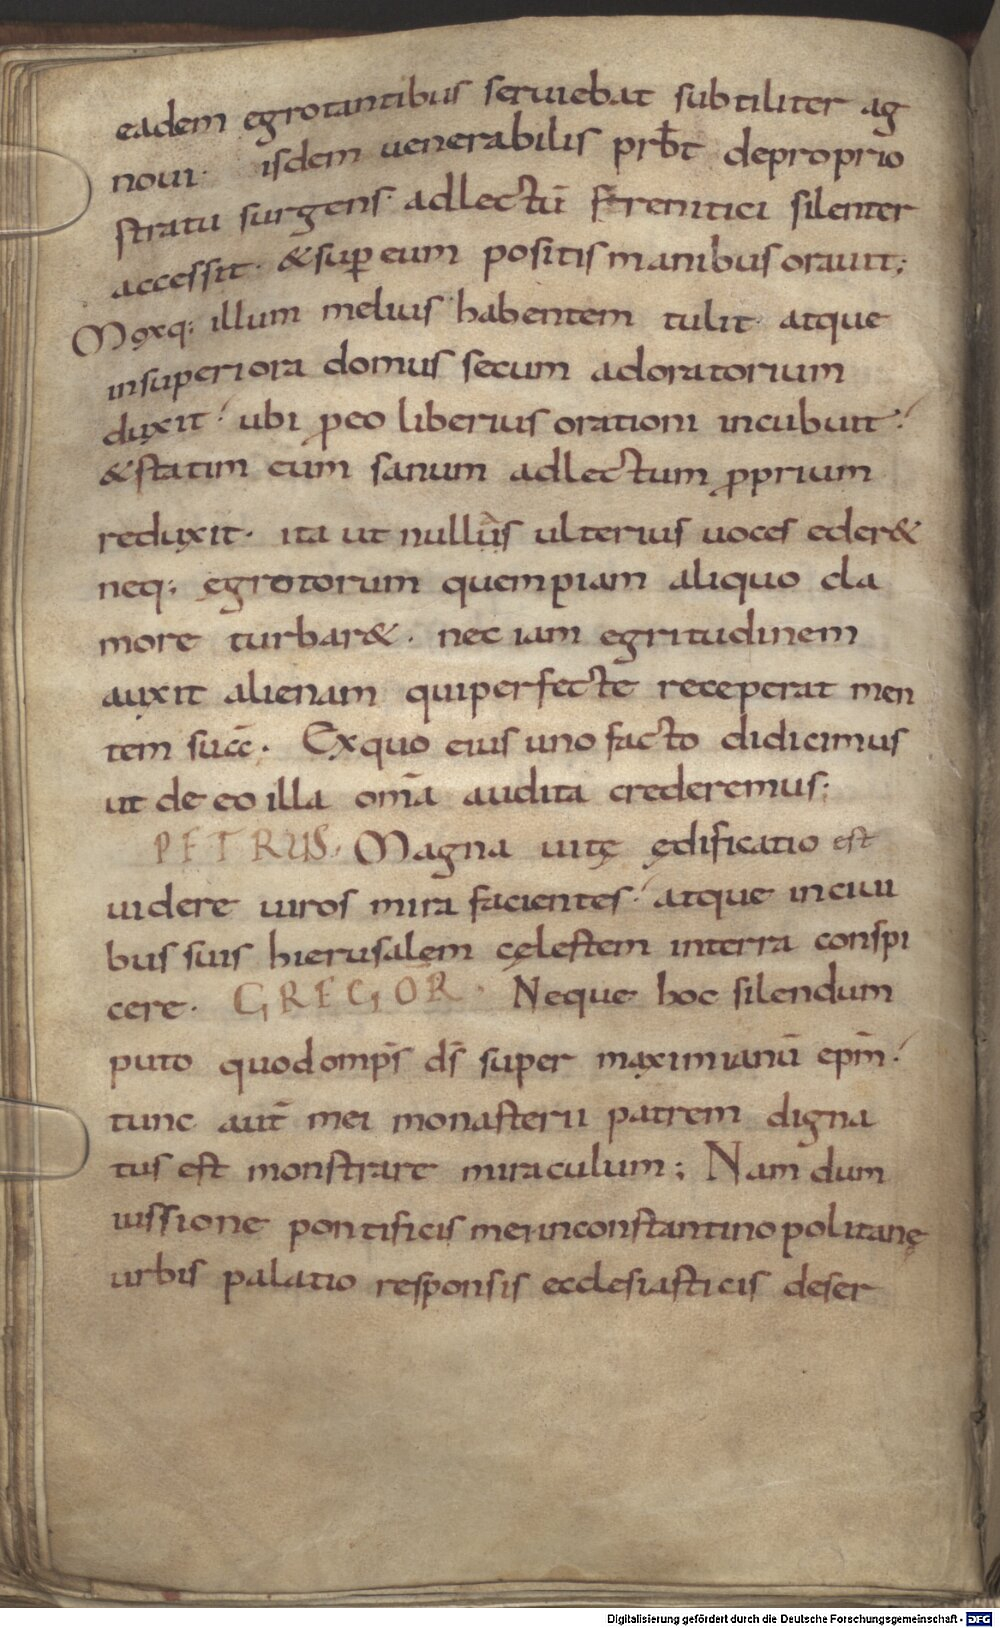 eadem egrotantibus seruiebat subtiliter ag
noui· isdem uenerabilis prƀt deproprio
stratu surgens· adlectū frenitici silenter
accessit· &sup eum positis manibus orauit;
Moxq; illum melius habentem tulit· atque
insuperiora domus secum adoratorium
duxit· ubi ꝓ eo liberius orationi incubuit·
&statim eum sanum adlectum ꝓprium
reduxit· ita ut nullus ulterius uoces eder&
neq; ęgrotorum quempiam aliquo cla
more turbar&· nec iam egritudinem
auxit alienam quiperfecte receperat men
tem succ̄· Exquo eius uno facto didicimus
ut de eo illa om̄a audita crederemus;
PETRUS· Magna uitę ędificatio est
uidere uiros mira facientes· atque inciui
bus suis hierusalem cęlestem interra conspi
cere· GREGOR̄· Neque hoc silendum
puto quod omp̄s d̄s super maximianū ep̄m·
tunc aut̄ mei monasterii patrem digna
tus est monstrare miraculum; Nam dum
iussione pontificis mei inconstantinopolitanę
urbis palatio responsis ecclesiasticis deser
Digitalisierung gefördert durch die Deutsche Forschungsgemeinschaft - DFG